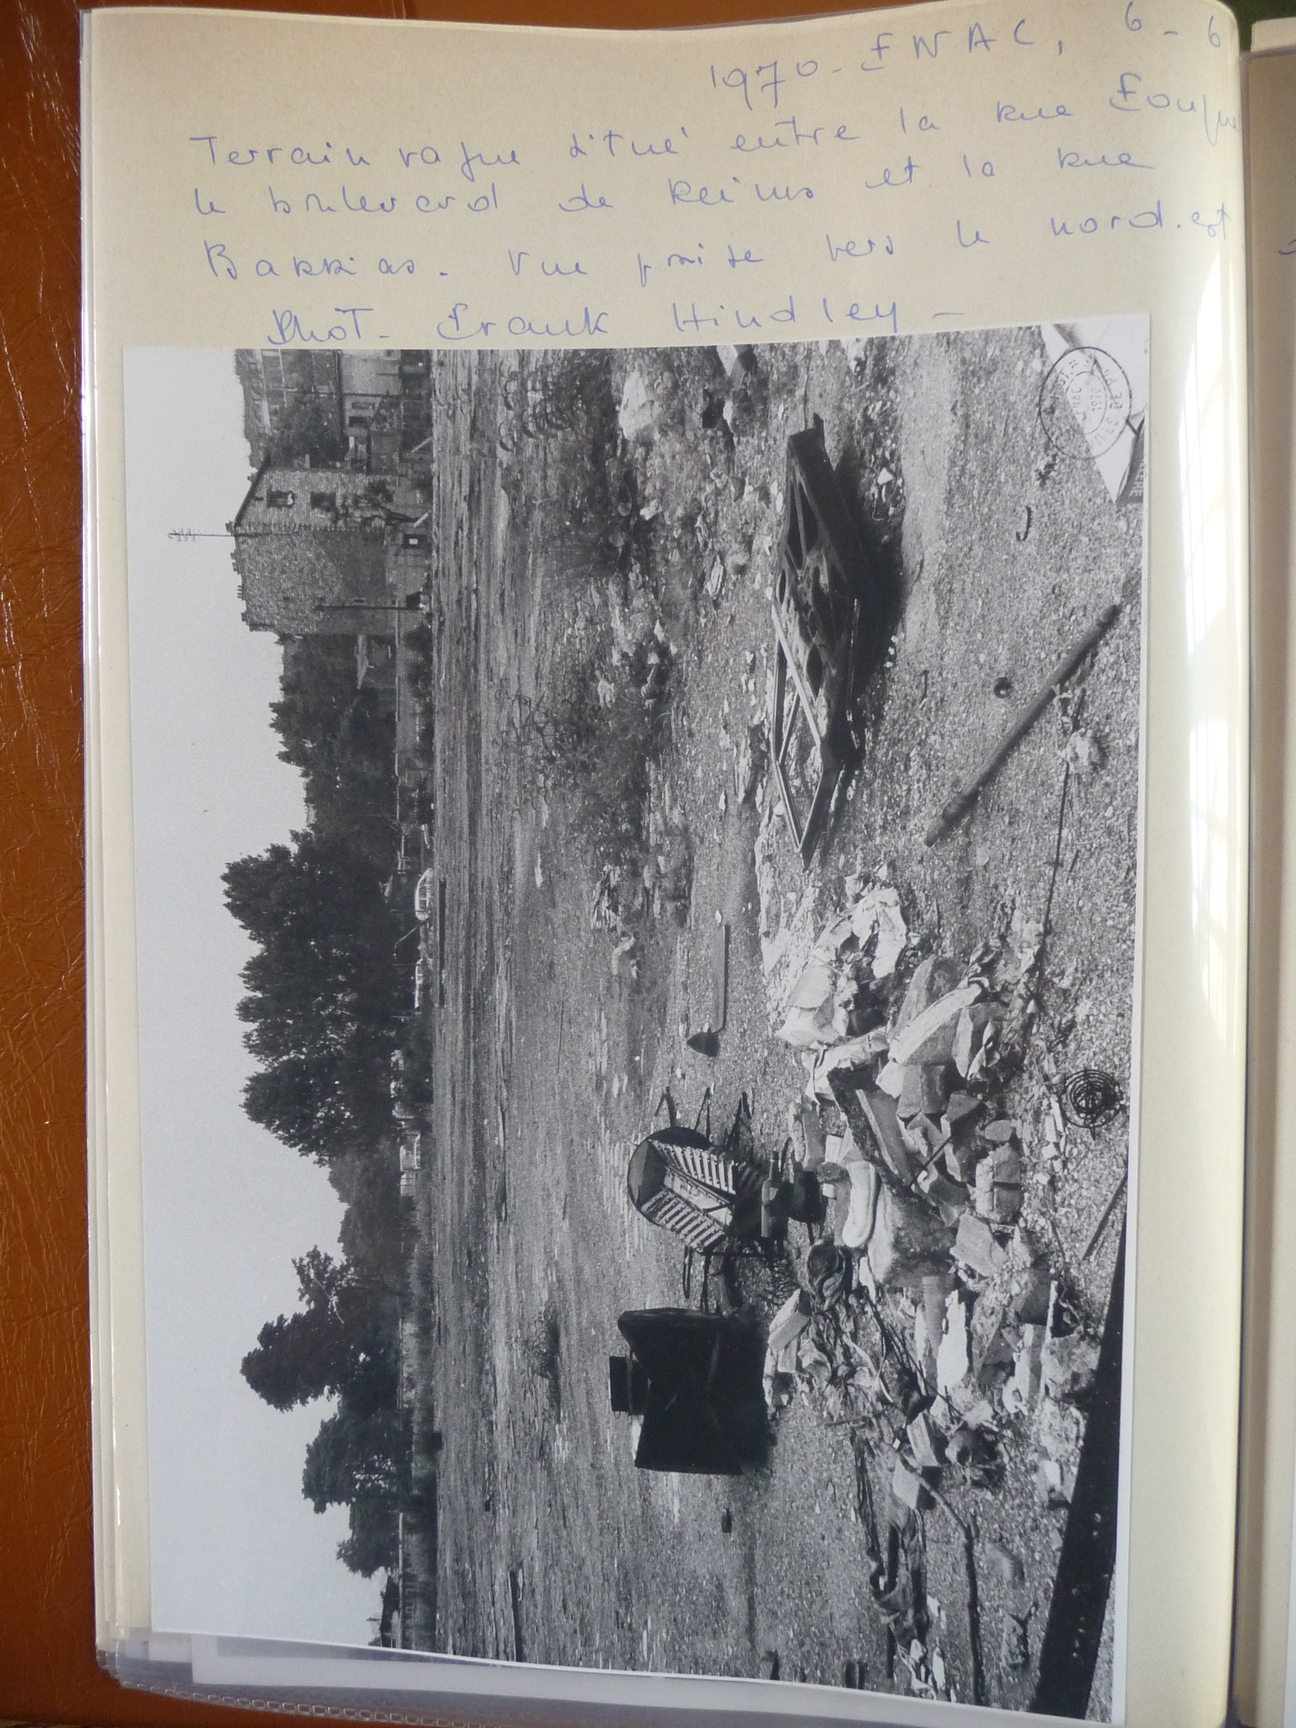 1970 - FNAC, 6 - 6
Terrain vague situé entre la rue
le boulevard de Reims et la rue
Barrias. Vue prise vers le nord.est
Phot. Franck Hindley -